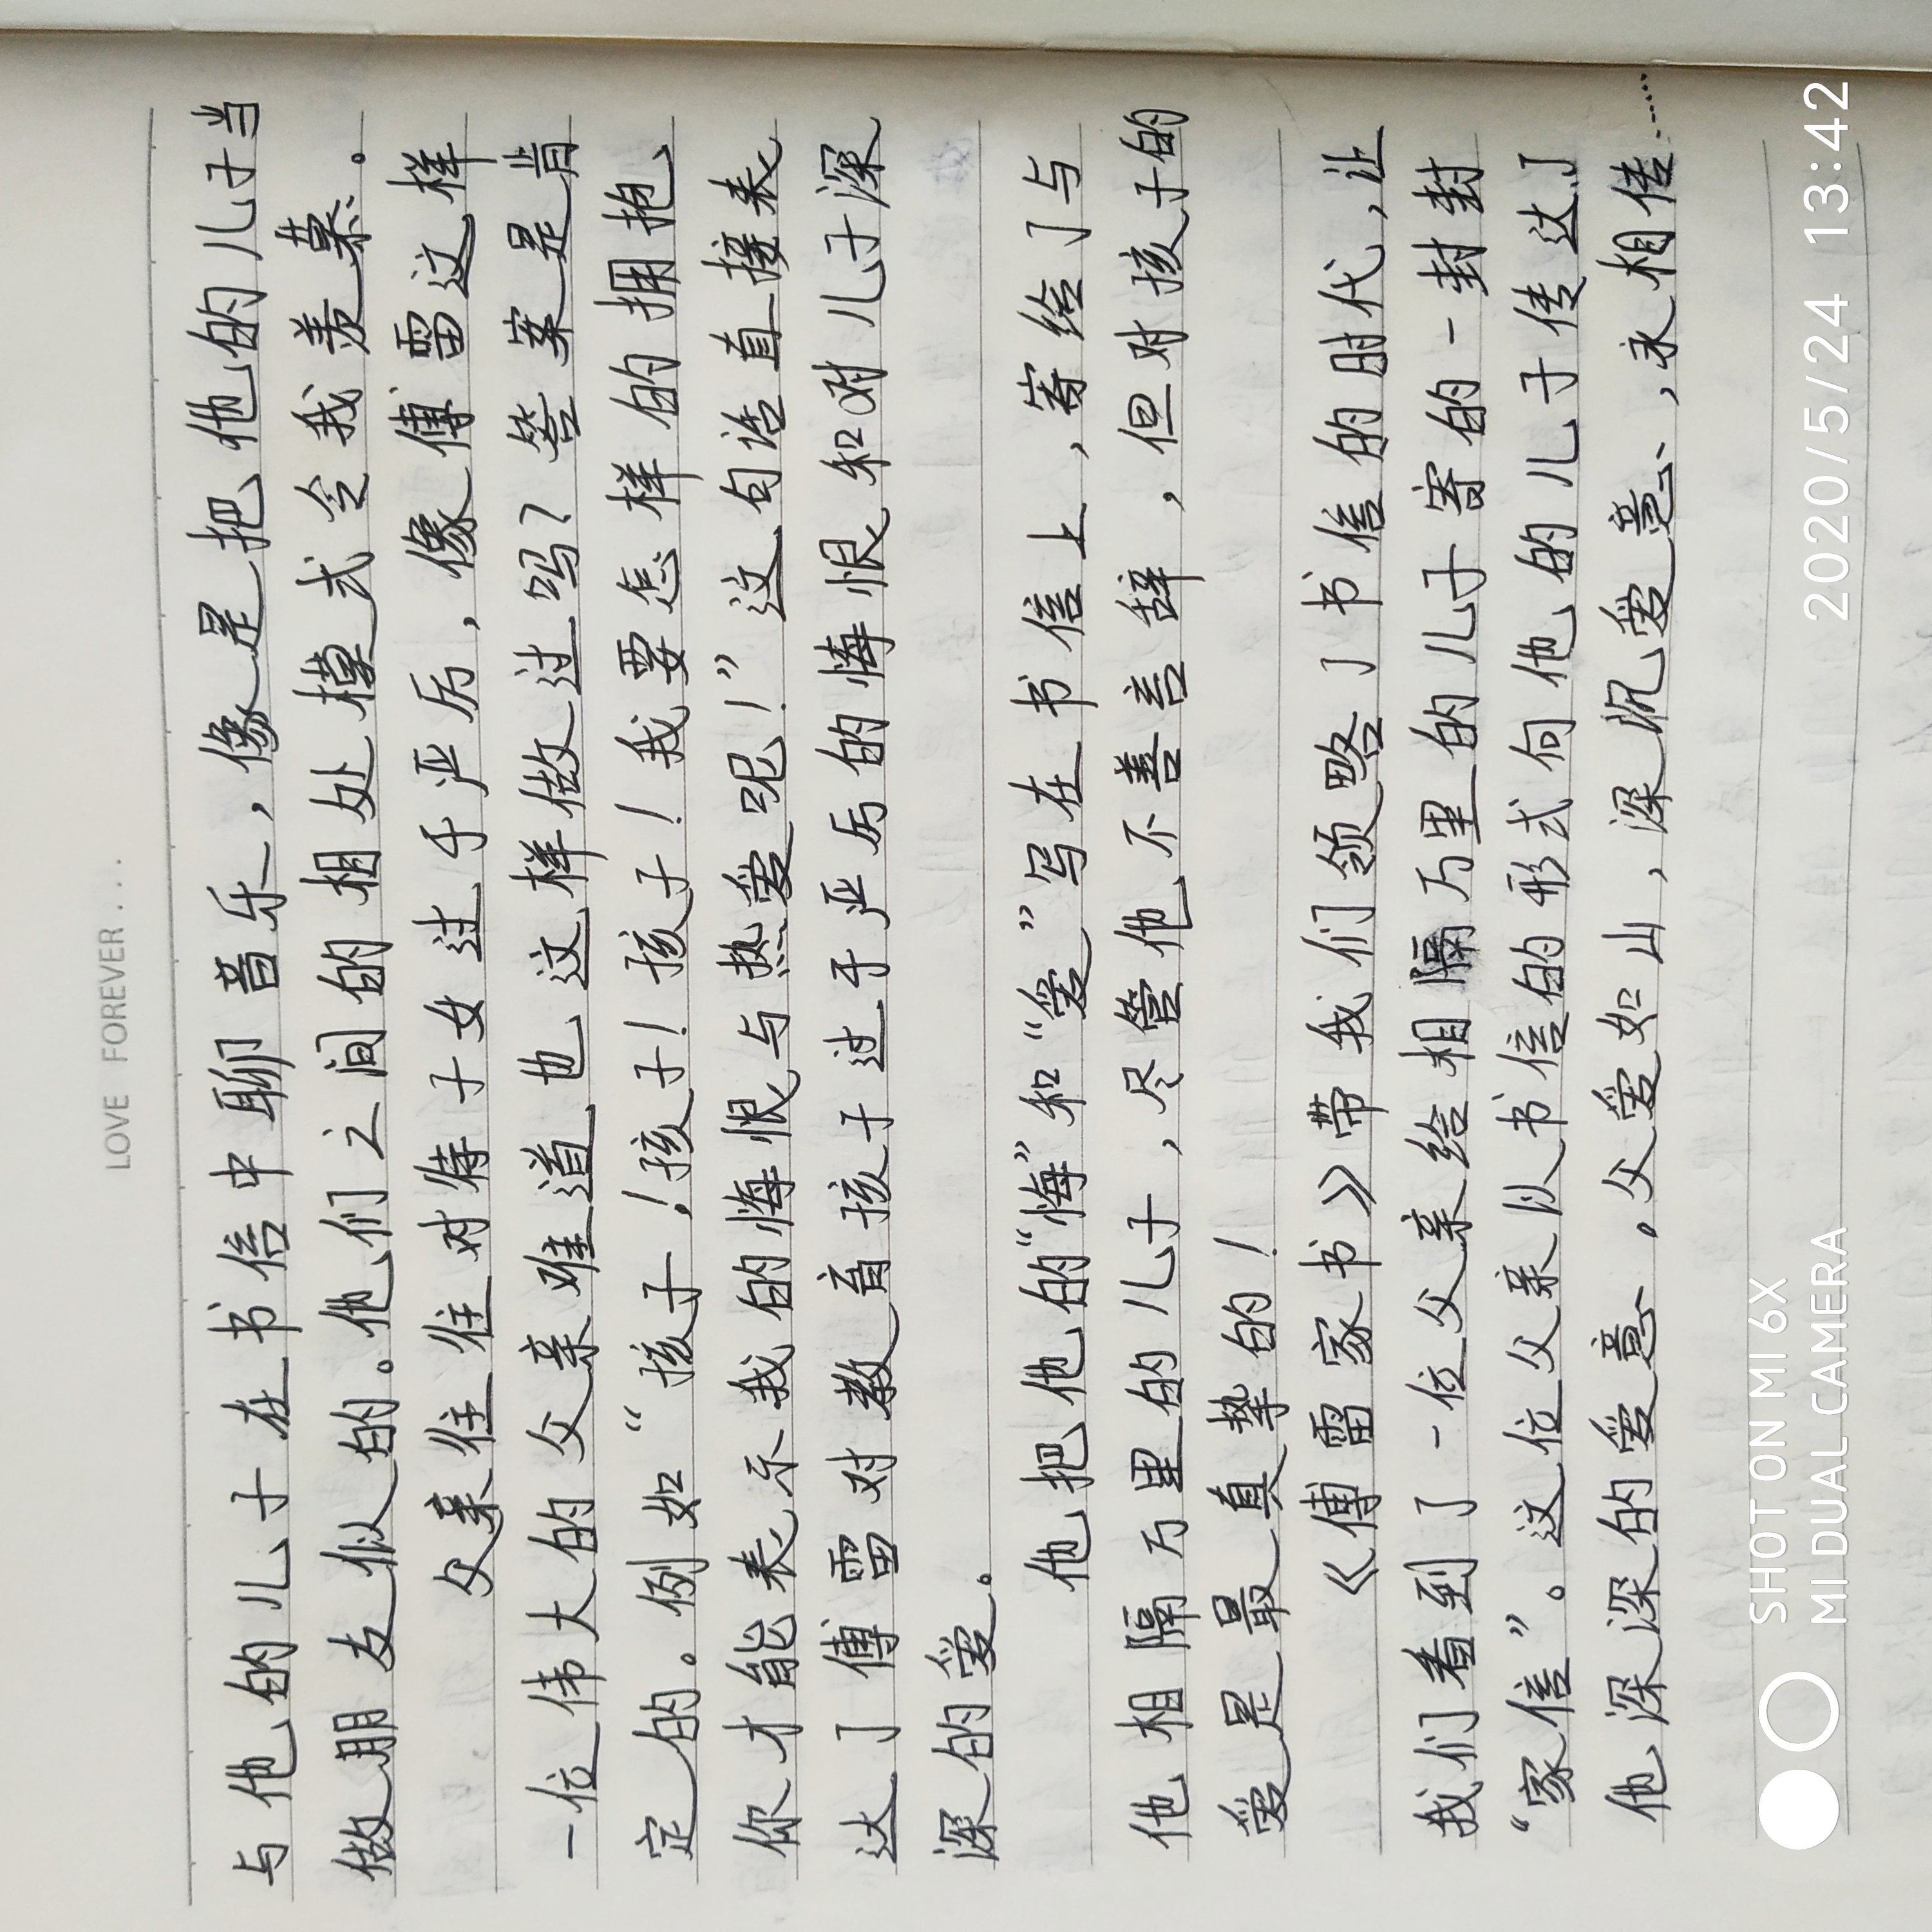 LOVE FOREVER...
与他的儿子在书信中聊音乐，像是把他的儿子当
做朋友似的。他们之间的相处模式令我羡慕。
父亲往往对待子女过于严厉，像傅雷这样
一位伟大的父亲难道也这样做过吗？答案是肯
定的。例如“孩子！孩子！孩子！我要怎样的拥抱
你才能表示我的悔恨与热爱呢！”这句话直接表
达了傅雷对教育孩子过于严厉的悔恨和对儿子深
深的爱。
他把他的“悔”和“爱”写在书信上，寄给了与
他相隔万里的儿子，尽管他不善言辞，但对孩子的
爱是最真挚的！
《傅雷家书》带我们领略了书信的时代，让
我们看到了一位父亲给相隔万里的儿子寄的一封封
“家信”。这位父亲以书信的形式向他的儿子传达了
他深深的爱意。父爱如山，深沉爱意，永相传……
SHOT ON MI 6X
MI DUAL CAMERA
2020/5/24 13:42